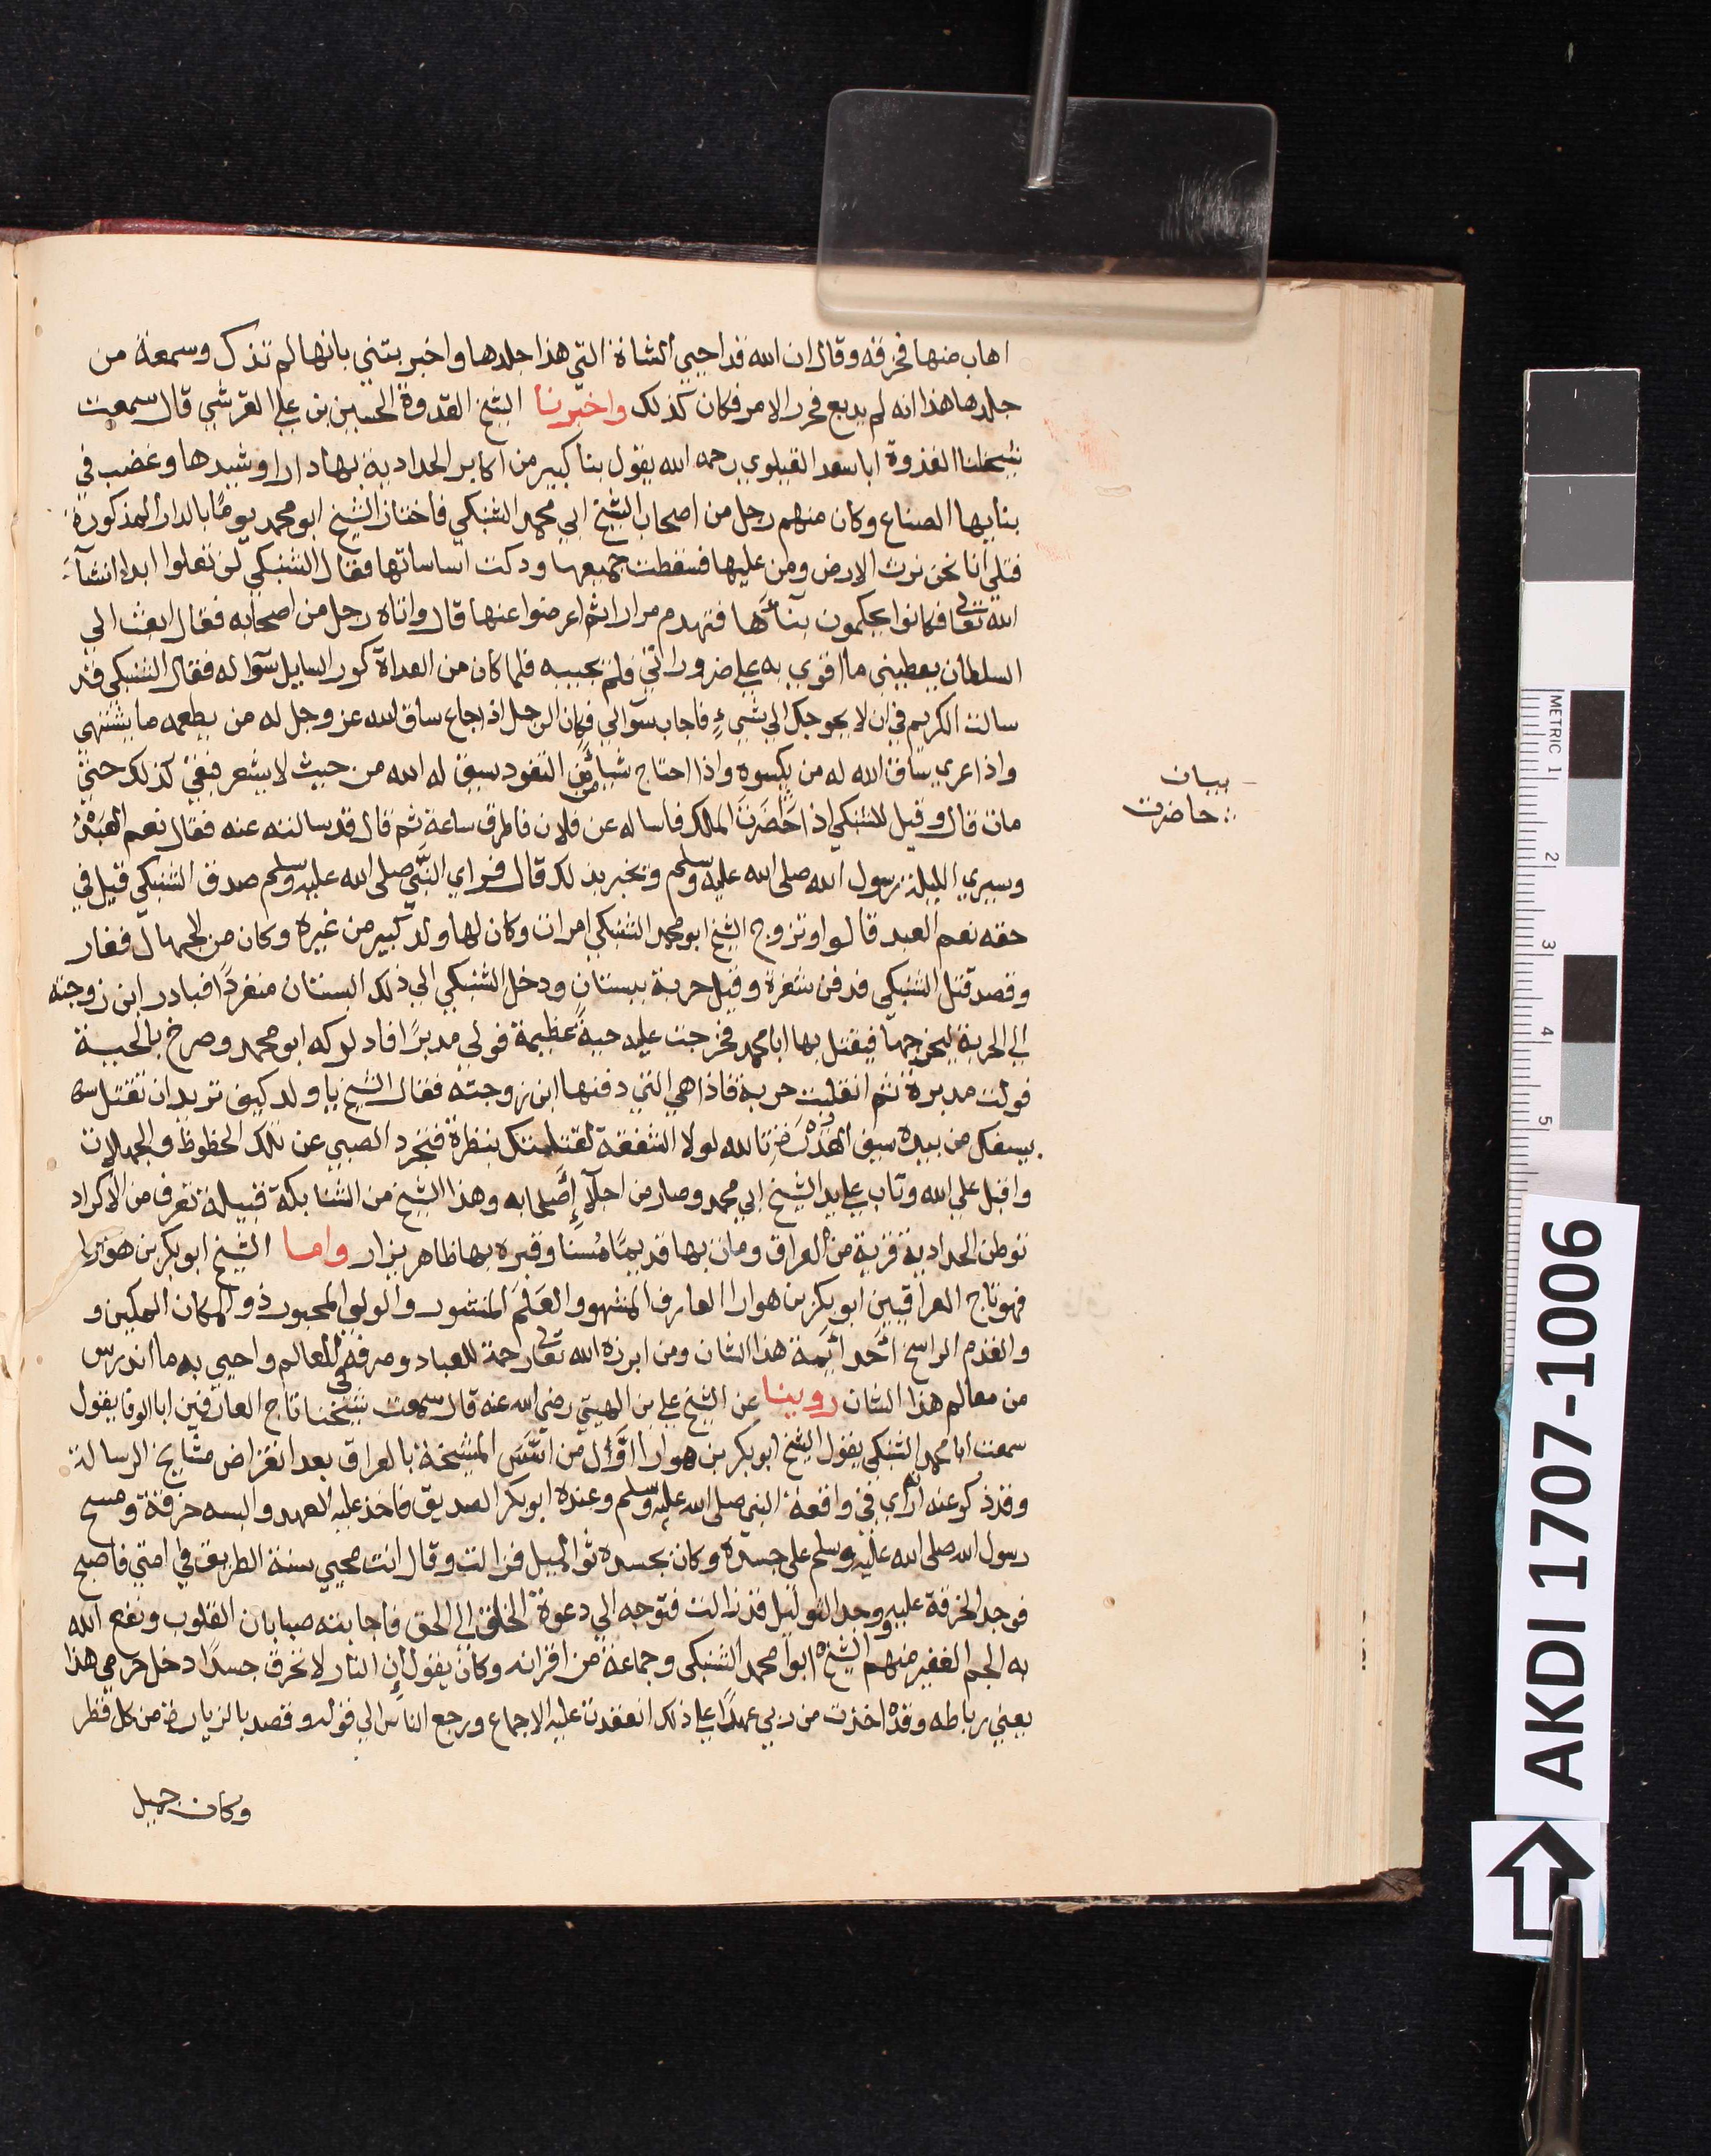 اهاب منها فخرقه وقال ان الله قد احيي الشاة التي هذا جلدها واخبر بتني بانها لم تذك وسمعة من
جلدها هذا انه لم يدبع فحرر الامر فكان كذلك واخبرنا الشيخ القدوة الحسين بن علي القرشي قال سمعت
شيخنا القدوة ابا سعد القيلوي رحمه الله يقول بنا كبير من اكابر الحدادية بها دارا وشيدها وغضب في
بنايها الصناع وكان منهم رجل من اصحاب الشيخ ابي محمد الشنبكي فاختان الشيخ ابو محمد يومًا بالدار المذكورة
فتلي انا نحن نرث الارض ومن عليها فسقطت جميعها ودكت اساساتها فقال الشنبكي لن تعلوا ابدا انشآء
الله تعالى فكانوا يحكمون بنآئها فتهدم مرارا ثم اعرضوا عنها قال واتاه رجل من اصحابه فقال ابعث الي
السلطان يعطيني ما اقوي به علي ضروراتي فلم يجيبه فلما كان من الغداة كرر السايل سوآله فقال الشنبكي قد
سالت الكريم في ان لا يحوجك الي شيءٍ فاجاب سوالي فكان الرجل اذا جاع ساق الله عز وجل له من يطعمه ما يشتهى
واذا عري ساق الله له من يكسوه واذا احتاج شيا من النقود سيق له الله من حيث لا يشعر فبقي كذلك حتى
مات قال وقيل للشنبكي اذا حَضَرتَ الملك فاساله عن فلان فاطرق ساعة ثم قال قد سالته عنه فقال نعم العبدُ
وسيري الليلة رسول الله صلى الله عليه وسلم ويخبر بذلك قال فراي النبي صلى الله عليه وسلم صدق الشنبكي قيل في
حقه نعم العبد قالوا وتزوج الشيخ ابو محمد الشنبكي امرات وكان لها ولد كبير من غيره وكان من الجهال فغار
وقصد قتل الشنبكي فدفن شفرة وقيل حربة ببستان ودخل الشنبكي الي ذلك البستان منفردًا فبادر ابن زوجته
الي الحربة ليخرجها فيقتل بها ابا محمد فخرجت عليه حية عظيمة فولي مدبرًا فادركه ابو محمد وصرخ بالحية
فولت مدبرة ثم انقلبت حربة فاذا هي التي دفنها ابن زوجته فقال الشيخ يا ولد كيف تريد ان تقتل
بسيفك من بيده سيف القدرة تالله لولا الشفقة لقتلتك بنظرة فتجرد الصبي عن تلك الحظوظ والجهالات
واقبل علي الله وتاب علي يد الشيخ ابي محمد وصار من اجلآء اصحابه وهذا الشيخ من الشنابكة قبيلة تعرف من الاكراد
توطن الحدادية قرية من العراق ومات بها قديمًا مُسنا وقبره بها ظاهر يزار واما الشيخ ابو بكر بن هوارا
فهو تاج العراقيين ابو بكر بن هوارا العارف المشهور والعَلَم المنشور والولي المحبور ذو المكان المكين و
والقدم الراسخ اَحد ائمة هذا الشان ومن ابرزه الله تعالى رحمة للعباد وصرفه في العالم واحيي به ما اندرس
من معالم هذا الشان روينا عن الشيخ علي بن الهيتي رضي الله عنه قال سمعت شيخنا تاج العارفين ابا الوفا يقول
سمعت ابا محمد الشنبكي يقول الشيخ ابو بكر بن هوارا اوّل من اسّس المشيخة بالعراق بعد انقراض مشايخ الرسالة
وقد ذكر عنه انه راي في واقعة النبي صلى الله عليه وسلم وعنده ابو بكر الصديق فاخذ عليه العهد والبسه خرقة ومسح
رسول الله صلى الله عليه وسلم على جسده وكان بجسده ثواليل فزالت وقال انت محيي سنة الطريق في امتي فاصبح
فوجد الخرقة عليه ووجد الثواليل قد زالت فتوجه الي دعوة الخلق الي الحق فاجابته صبابات القلوب ونفع الله
به الجم الغفير منهم الشيخ ابو محمد الشنبكي وجماعة من اقرانه وكان يقول ان النار لا تحرق جسدًا دخل حرمي هذا
يعني رباطه وقد اخذت من ربي عهدًا علي ذلك انعقدت عليه الاجماع ورجع الناس الي قوله وقصد بالزيارة من كل قطر
وكان جميل
بيان
حاضرت
METRIC 1 2 3 4 5
AKDI 1707-1006